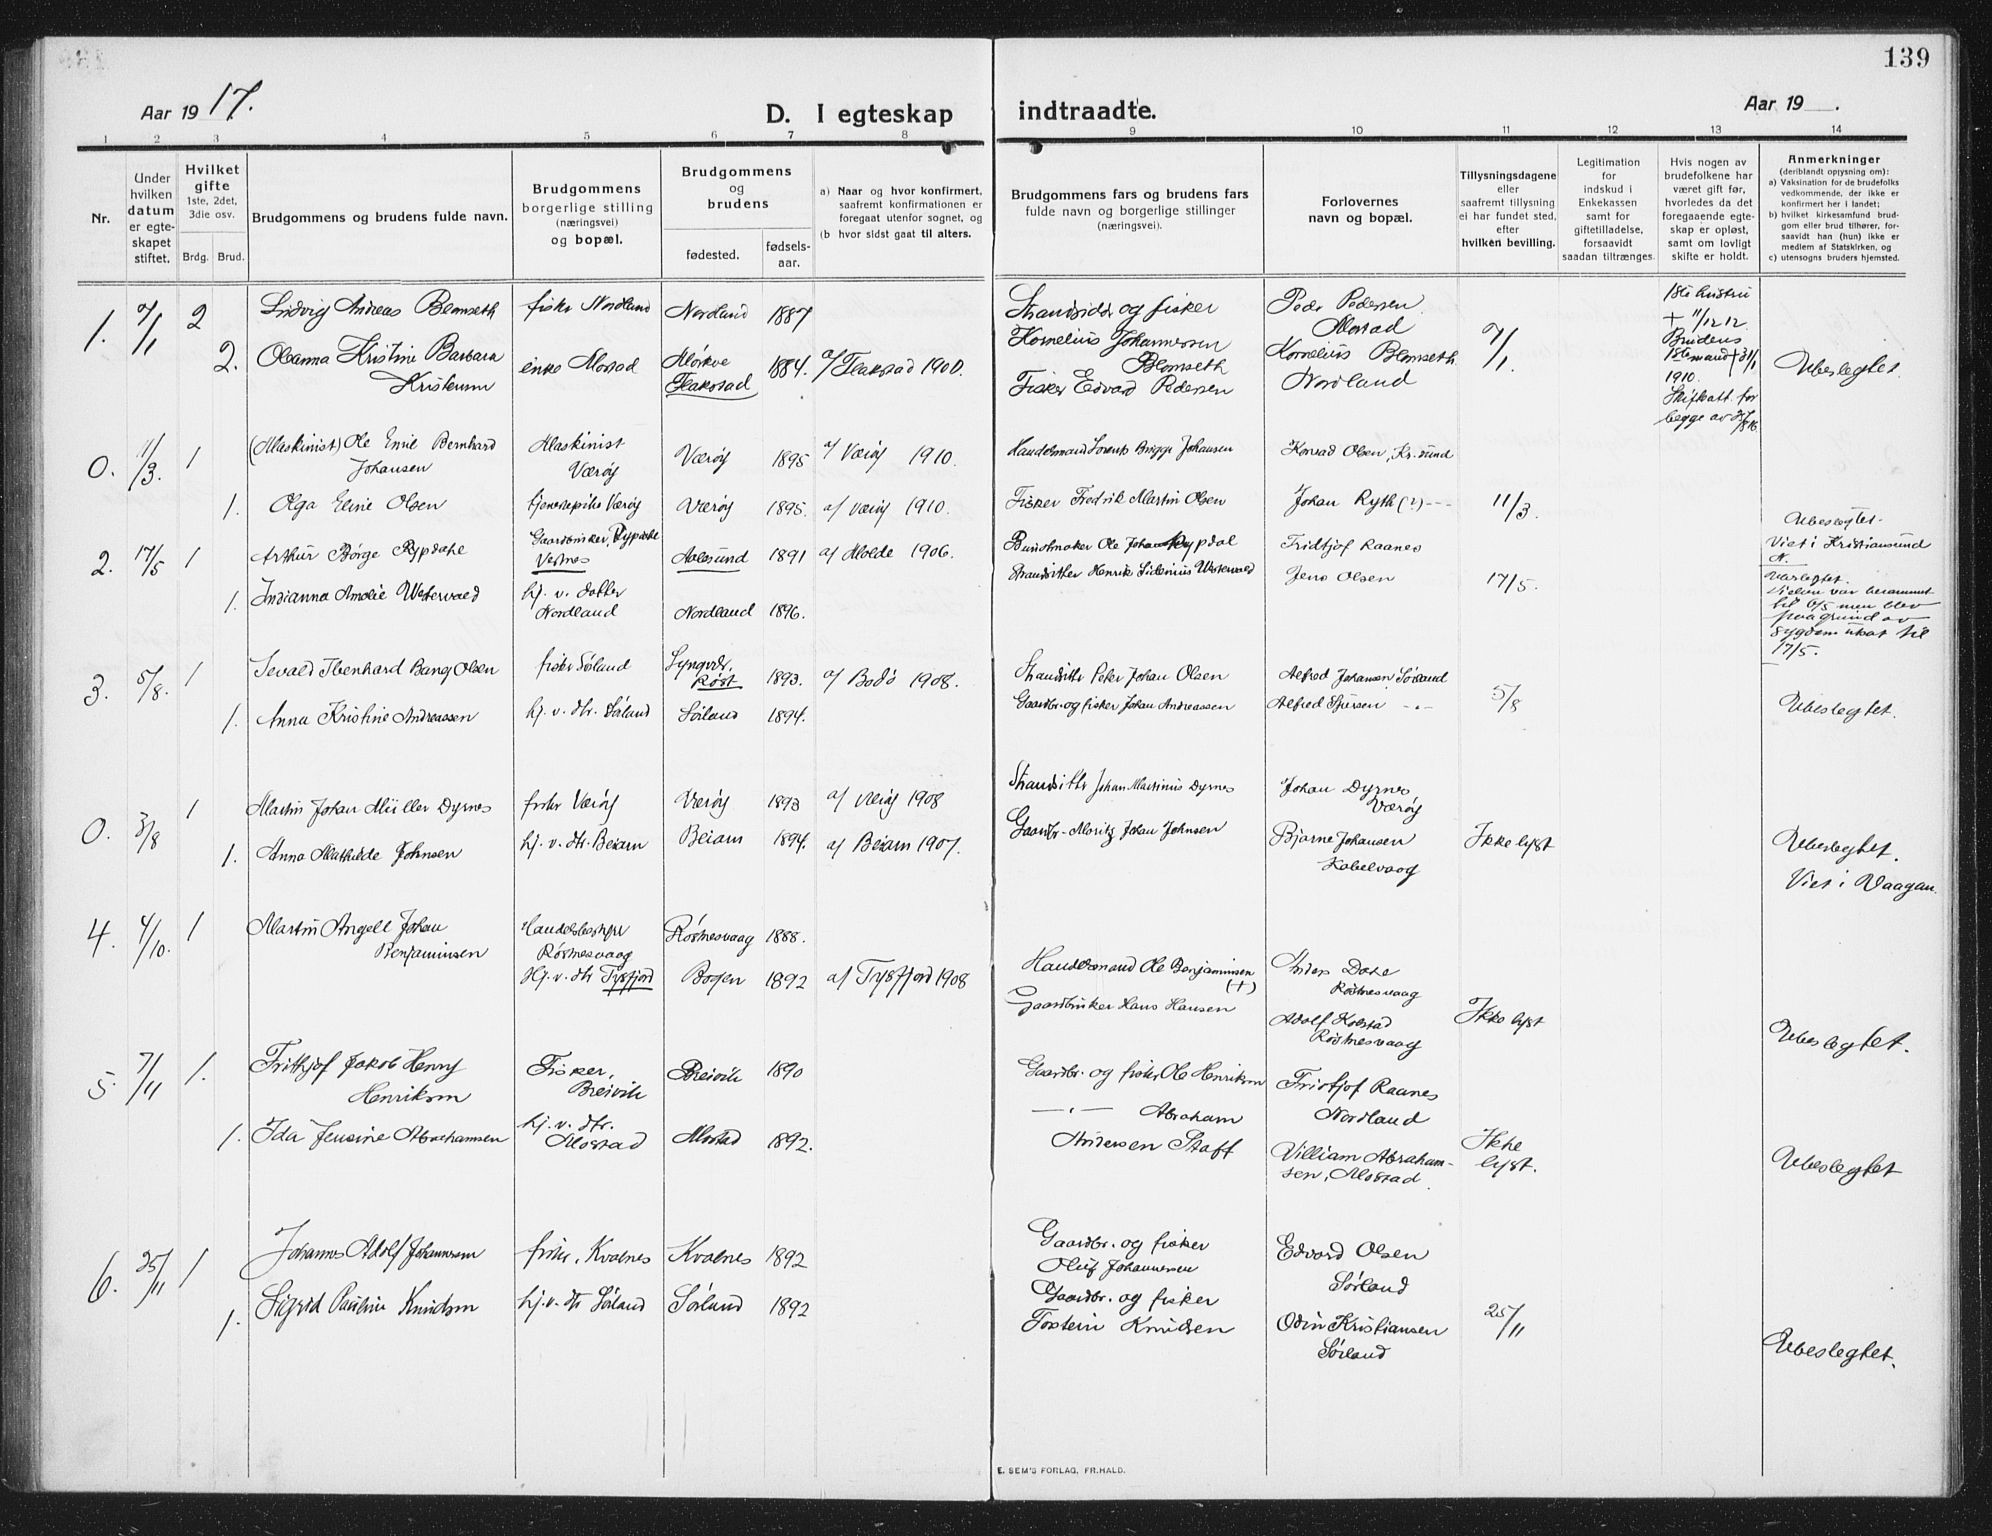 139
Aar 19 17.
D. I egteskap indtraadte.
Aar 19 .
1 2 3 4 5 6 7 8 9 10 11 12 13 14
Nr.
Under hvilken datum er egte-skapet stiftet.
Hvilket gifte 1ste, 2det, 3die osv.
Brdg. Brud.
Brudgommens og brudens fulde navn.
Brudgommens borgerlige stilling (næringsvei) og bopæl.
Brudgommens og brudens
fødested.
fødsels-aar.
a) Naar og hvor konfirmert, saafremt konfirmationen er foregaat utenfor sognet, og
(b hvor sidst gaat til alters.
Brudgommens fars og brudens fars fulde navn og borgerlige stillinger (næringsvei).
Forlovernes navn og bopæl.
Tillysningsdagene eller saafremt tillysning ei har fundet sted, efter hvilken bevilling.
Legitimation for indskud i Enkekassen samt for giftetilladelse, forsaavidt saadan tiltrænges.
Hvis nogen av brudefolkene har været gift før, hvorledes da det foregaaende egte-skap er opløst, samt om lovligt skifte er holdt.
Anmerkninger (deriblandt oplysning om):
a) Vaksination for de brudefolks vedkommende, der ikke er konfirmert her i landet;
b) hvilket kirkesamfund brud-gom eller brud tilhører, for-saavidt han (hun) ikke er medlem af Statskirken, og
c) utensogns bruders hjemsted.
1. 7/1 2 Ludvig Andreas Blomseth fisker Nordland Nordland 1887
2. Olianna Kristine Barbara enke Mostad Flakstad 1884. a/ Flakstad 1900.
Strandsidder og fisker
Kornelius Johannessen
Blomseth
Fisker Edvard Pedersen
Peder Pedersen
Mostad
Kornelius Blomseth
Nordland
7/1.
1ste hustru
+ 11/12 12.
Brudens
1ste mand + 31/1
1910.
Skifteatt. for
begge av
Ubeslegtet.
0. 11/3. 1 (Maskinist) Ole Emil Bernhard
Johansen
Maskinist
Værøy
Værøy 1895 a/ Værøy 1910.
Johansen
Konrad Olsen, Kr.sund
1. Olga Eline Olsen tjenestepike Værøy Værøy 1895. a/ Værøy 1910.
Fisker Fredrik Martin Olsen
Johan Ryth (?) - - -
11/3.
Ubeslegtet.
Viet i Kristiansund
N.
2. 17/5 1 Arthur Børge Rypdahl
Gaardbruker, Rypdahl
Vestnes
Aalesund 1891 a/ Molde 1906.
Buntmaker Ole Rypdal
Fridtjof Raanes
1. Indianna Amalie Westervald
hj. v. datter
Nordland
Nordland 1896.
Strandsitter Henrik Westervald
Jens Olsen
17/5.
Ubeslegtet.
Vielsen var berammet
til 6/5 men blev
paa grund av
sygdom utsat til
17/5.
3. 5/8. 1 Sevald Benhard Bang Olsen fisker Sørland
Røst
1893. a/ Bodø 1908.
Strandsitter Peter Johan Olsen
Alfred Johansen, Sørland
1. Anna Kristine Andreassen hj. v. dtr. Sørland Sørland 1894.
Gaardbr. og fisker Johan Andreassen
Alfred -"-
5/8
Ubeslegtet.
0. 3/8 1 Martin Johan Müller Dyrnes fisker Værøy Værøy 1893 a/ Værøy 1908
Strandsitter Johan Martinius Dyrnes
Johan Dyrnes
Værøy
1. Anna Mathilde Johnsen hj. v. dtr. Beiarn Beiarn 1894. a/ Beiarn 1907.
Gaardbr. Moritz Johan Johnsen
Bjarne Johansen
Kabelvaag
Ikke lyst
Ubeslegtet.
Viet i Vaagan.
4. 4/10. 1 Martin Angell Johan
Benjaminsen
Handelsbestyrer
Røstnesvaag
Røstnesvaag 1888.
Hj. v. dtr Tysfjord Bogen 1892 a/ Tysfjord 1908
Handelsmand Ole Benjaminsen
(+)
Gaardbruker Hans Hansen
Anders
Røstnesvaag
Adolf Kolstad
Røstnesvaag
Ikke lyst
Ubeslegtet.
5. 7/11 1. Frithjof Jakob Henry
Henriksen
Fisker,
Breivik
Breivik 1890
Gaardbr. og fisker Ole Henriksen
Fridtjof Raanes
Nordland
1. Ida Jensine Abrahamsen
hj. v. dtr.
Mostad
Mostad 1892.
-"- Abraham
Andersen Staff
Villiam Abraham-
sen, Mostad
Ikke
lyst.
Ubeslegtet
6. 25/11 1 Johannes Adolf Johannesen fisker, Kvalnes Kvalnes 1892
Gaardbr. og fisker
Oluf Johannessen
Edvard Olsen
Sørland
1. Sigrid Pauline Knudsen hj. v. dtr Sørland Sørland 1892
Gaardbr. og fisker
Torstein Knudsen
Odin Kristiansen
Sørland
25/11
Ubeslegtet.
E. SEM'S FORLAG, FR.HALD.